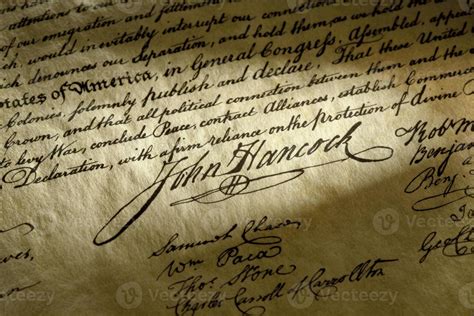 attentions to our
of our emigration and settlement here. We have
which, would inevitably interrupt our connections and
which denounces our Separation, and hold them, as we hold the
States of America, in General Congress, Assembled, appea
Colonies, solemnly publish and declare, That these United
Crown, and that all political connection between them and the
to levy War, conclude Peace, contract Alliances, establish Comme
Declaration, with a firm reliance on the protection of divine
John Hancock
Rob M
Benjam
Benj.
Samuel Chase
Wm Paca
Thos Stone
Charles Carroll of Carrollton
Geo
Vecteezy
Vecteezy
Vecteezy